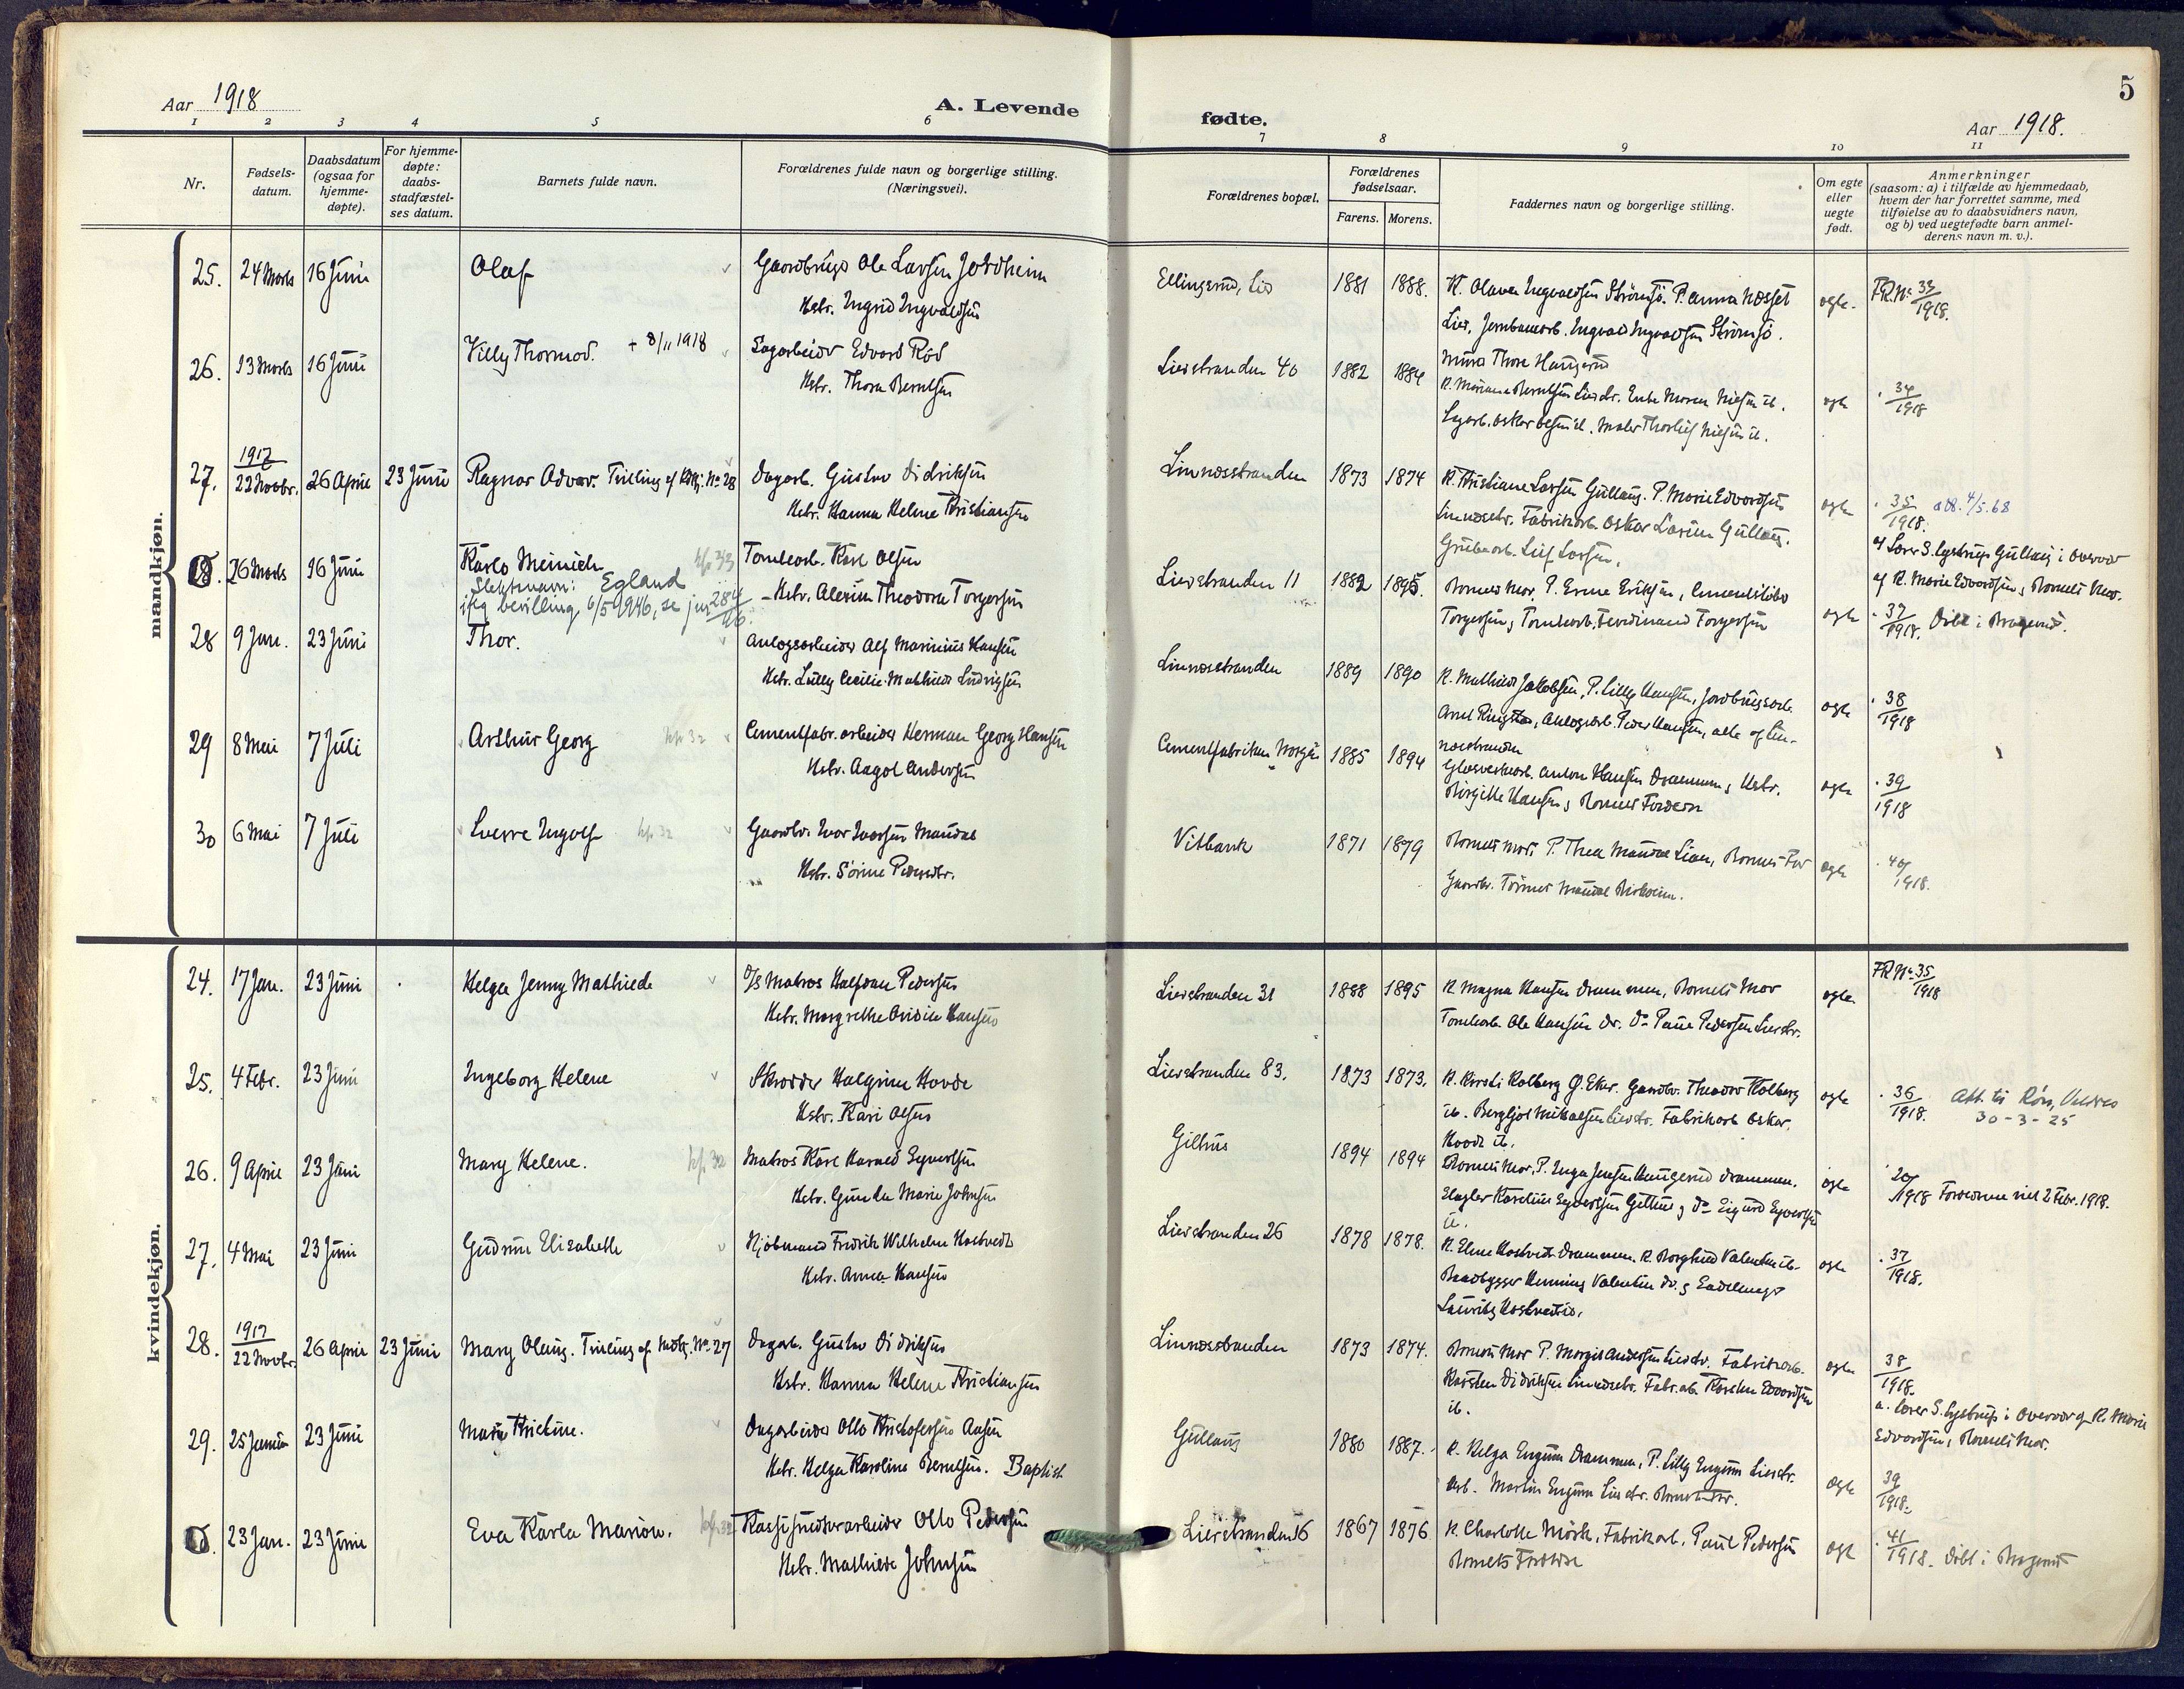 Aar 1918
A. Levende
fødte.
Aar 1918.
5
1 2 3 4 5 6 7 8 9 10 11
Nr.
Fødsels-
datum.
Daabsdatum
(ogsaa for
hjemme-
døpte).
For hjemme-
døpte:
daabs-
stadfæstel-
ses datum.
Barnets fulde navn.
Forældrenes fulde navn og borgerlige stilling.
(Næringsvei).
Forældrenes bopæl.
Forældrenes
fødselsaar.
Farens. Morens.
Faddernes navn og borgerlige stilling.
Om egte
eller
uegte
født.
Anmerkninger
(saasom: a) i tilfælde av hjemmedaab,
hvem der har forrettet samme, med
tilføielse av to daabsvidners navn,
og b) ved uegtefødte barn anmel-
derens navn m. v.).
mandkjøn.
25. 24 Marts 16 Juni Olaf Gaardbruger Ole Larsen Jordheim
Hstr. Ingrid Ingvaldsen
Ellingerud, Lier 1881 1888. K. Olava Ingvaldsen Strømsø. P. Anna Næsset
Lier, Jernbanearb. Ingvald Ingvaldsen Strømsø.
Thora Haugerud
egte. FR. Nr. 33/1918.
26. 13 Marts 16 Juni Villy Thormod. + 8/11 1918 Sagarbeider Edvard Röd
Hstr. Thora Berntsen
Lierstranden 40 1882 1884 Berntsen Lierstr. Enke Maren Nielsen ib.
Oskar Olsen ib. Maler Thorleif Nielsen ib.
egte 34/1918
27. 1917 22 Novbr. 26 April 23 Juni Ragnar Advar. Tvilling af Kvkj. No 28 Dagarb. Gustav Didriksen
Hstr. Hanna Helene Kristiansen
Linnesstranden 1873 1874 K. Kristiane Larsen Gullaug. P. Marie Edvardsen
Linnesstr. Fabrikarb. Oskar Larsen Gullaug.
Grubearb. Leif Larsen.
egte 35/1918. att. 4/5.68
af Lærer S. Lystrup Gullaug i Overvær
af K. Marie Edvardsen, Barnets Mor.
16 Marts 16 Juni Karlo Meinich kfr 33
Slektsnavn: Egland
iflg bevilling 6/5 1946, se jnr 284/46.
Tomtearb. Karl Olsen
Hstr. Alexia Theodora Torgersen
Lierstranden 11 1882 1895. Barnets Mor. P. Erna Eriksen,
Torgersen, Tomtearb. Ferdinand Torgersen
egte 37/1918. Døbt i Bragernes.
28 9 Jan. 23 Juni Thor. Anlægsarbeider Alf Marinius Hansen
Hstr. Lully Cecilie Mathilde Ludvigsen
Linnesstranden 1889 1890 K. Mathilde Jakobsen, P. Lilly Hansen, Jordbrugsarb.
Arnt Ringstad, Anlægsarb. Peder Hansen, alle af Lin-
nesstranden
egte 38/1918
29 8 Mai 7 Juli Arthur Georg kfr 32 Cementfabr. arbeider Herman Georg Hansen
Hstr. Aagot Andersen
Cementfabriken Norge 1885 1894 Glasverksarb. Anton Hansen Drammen, Hstr.
Birgitte Hansen, Barnets Forældre
egte 39/1918
30 6 Mai 7 Juli Sverre Ingolf kfr 32 Gaardbr. Ivar Ivarsen Maudal
Hstr. Sørine Pedersdtr.
Vitbank 1871 1879 Barnets mor. P. Thea Maudal Lian, Barnets Far
Gaardbr. Tørnes Maudal
egte 40/1918.
kvindekjøn.
24. 17 Jan. 23 Juni Helga Jenny Mathilde Matros Halfdan Pedersen
Hstr. Margrethe Ovidia Hansen
Lierstranden 31 1888 1895 K. Magna Hansen Drammen, Barnets Mor
Tomtearb. Ole Hansen Dr. Do Paul Pedersen Lierstr.
egte. FR Nr. 35/1918
25. 4 Febr. 23 Juni Ingeborg Helene Skrædder Halgrim Hovde
Hstr. Kari Olsen
Lierstranden 83. 1873 1873. K. Kirsti Kolberg Ø. Eker. Gaardbr. Theodor Kolberg
ib. Bergljot Mikalsen Lierstr. Fabrikarb. Oskar
Hovde ib.
egte 36/1918. Att. til Røn, Valdres
30-3-25
26. 9 April 23 Juni Mary Helene. kfr. 32 Matros Karl Harald Syvertsen
Hstr. Gunda Marie Johnsen
Gilhus 1894 1894 Barnets Mor. P. Inga Jensen Haugerud Drammen.
Karelius Syvertsen Gilhus, Do Sigurd Syvertsen
ib.
egte 20/1918 Foreldrene viet 2 Febr. 1918.
27. 4 Mai 23 Juni Gudrun Elisabeth Kjøbmand Fredrik Wilhelm Hostvedt
Hstr. Anna Hansen
Lierstranden 26 1878 1878. K. Elna Hostvedt Drammen. K. Borghild Valentin ib.
Baadbygger Henning Valentin Dr.,
Lauritz Hostvedt ib.
egte 37/1918.
28. 1917 22 Novbr. 26 April 23 Juni Mary Olaug. Tvilling af Mdkj. No 27 Dagarb. Gustav Didriksen
Hstr. Hanna Helene Kristiansen
Linnesstranden 1873 1874. Barnets Mor P. Margit Andersen Lierstr. Fabrikarb.
Karsten Didriksen Linnesstr. Fabr.arb. Karsten Edvardsen
ib.
egte 38/1918.
a. Lærer S. Lystrup i Overvær af K. Marie
Edvardsen, Barnets Mor.
29. 25 Januar 23 Juni Maria Kristine. Dagarbeider Otto Kristofersen Aasen
Hstr. Helga Karoline Berntsen. Baptist
Gullaug 1880 1887. K. Helga Engum Drammen, P. Lilly Engum Lierstr.
Arb. Martin Engum Lierstr. Barnets Far.
egte 39/1918.
23 Jan. 23 Juni Eva Karla Marion. kfr. 32 Arbeider Otto Pedersen
Hstr. Mathilde Johnsen
Lierstranden 16 1867 1876. K. Charlotte Mörk, Fabrikarb. Paul Pedersen
Barnets Forældre
egte 41/1918. Døbt i Bragernes